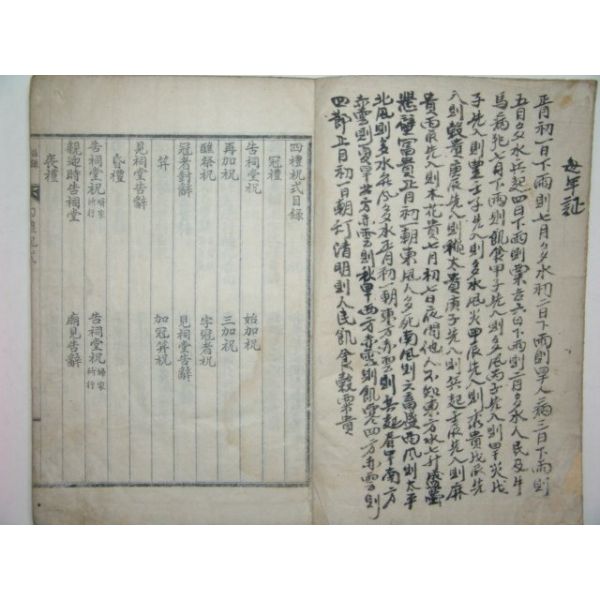 每年証
正月初一日下雨則七月多水初二日下雨則旱人病三日下雨則
五日多水兵起四日下雨則粟六日下雨則二月多水人民及牛
馬病死七月下雨則飢食甲子先入則多風丙子先入則旱災戊
子先入則豊壬子先入則多水風災甲辰先入則求貴戊辰先
入則穀貴庚辰先入則大貴庚子先入則兵起壬辰先入則麻
貴雨辰先入則木花貴七月初七日夜間他人不知東方水七升盛
壁富貴正月初一朝東風人多死南風則六畜盛西風則太平
北風則多水正月初一朝東方赤雲則兵起春旱南方
赤雲則夏旱北方赤雲則秋旱西方赤雲則飢
四節正月初一日朝清明則人民飢食穀粟貴
四禮祝式目錄
冠禮
告祠堂祝 始加祝
再加祝 三加祝
醮祭祝 字冠者祝
冠者對辭 見祠堂告辭
笄 加冠笄祝
見祠堂告辭
昏禮
告祠堂祝婿家所行 告祠堂祝婦家所行
親迎時告祠堂 廟見告辭
喪禮